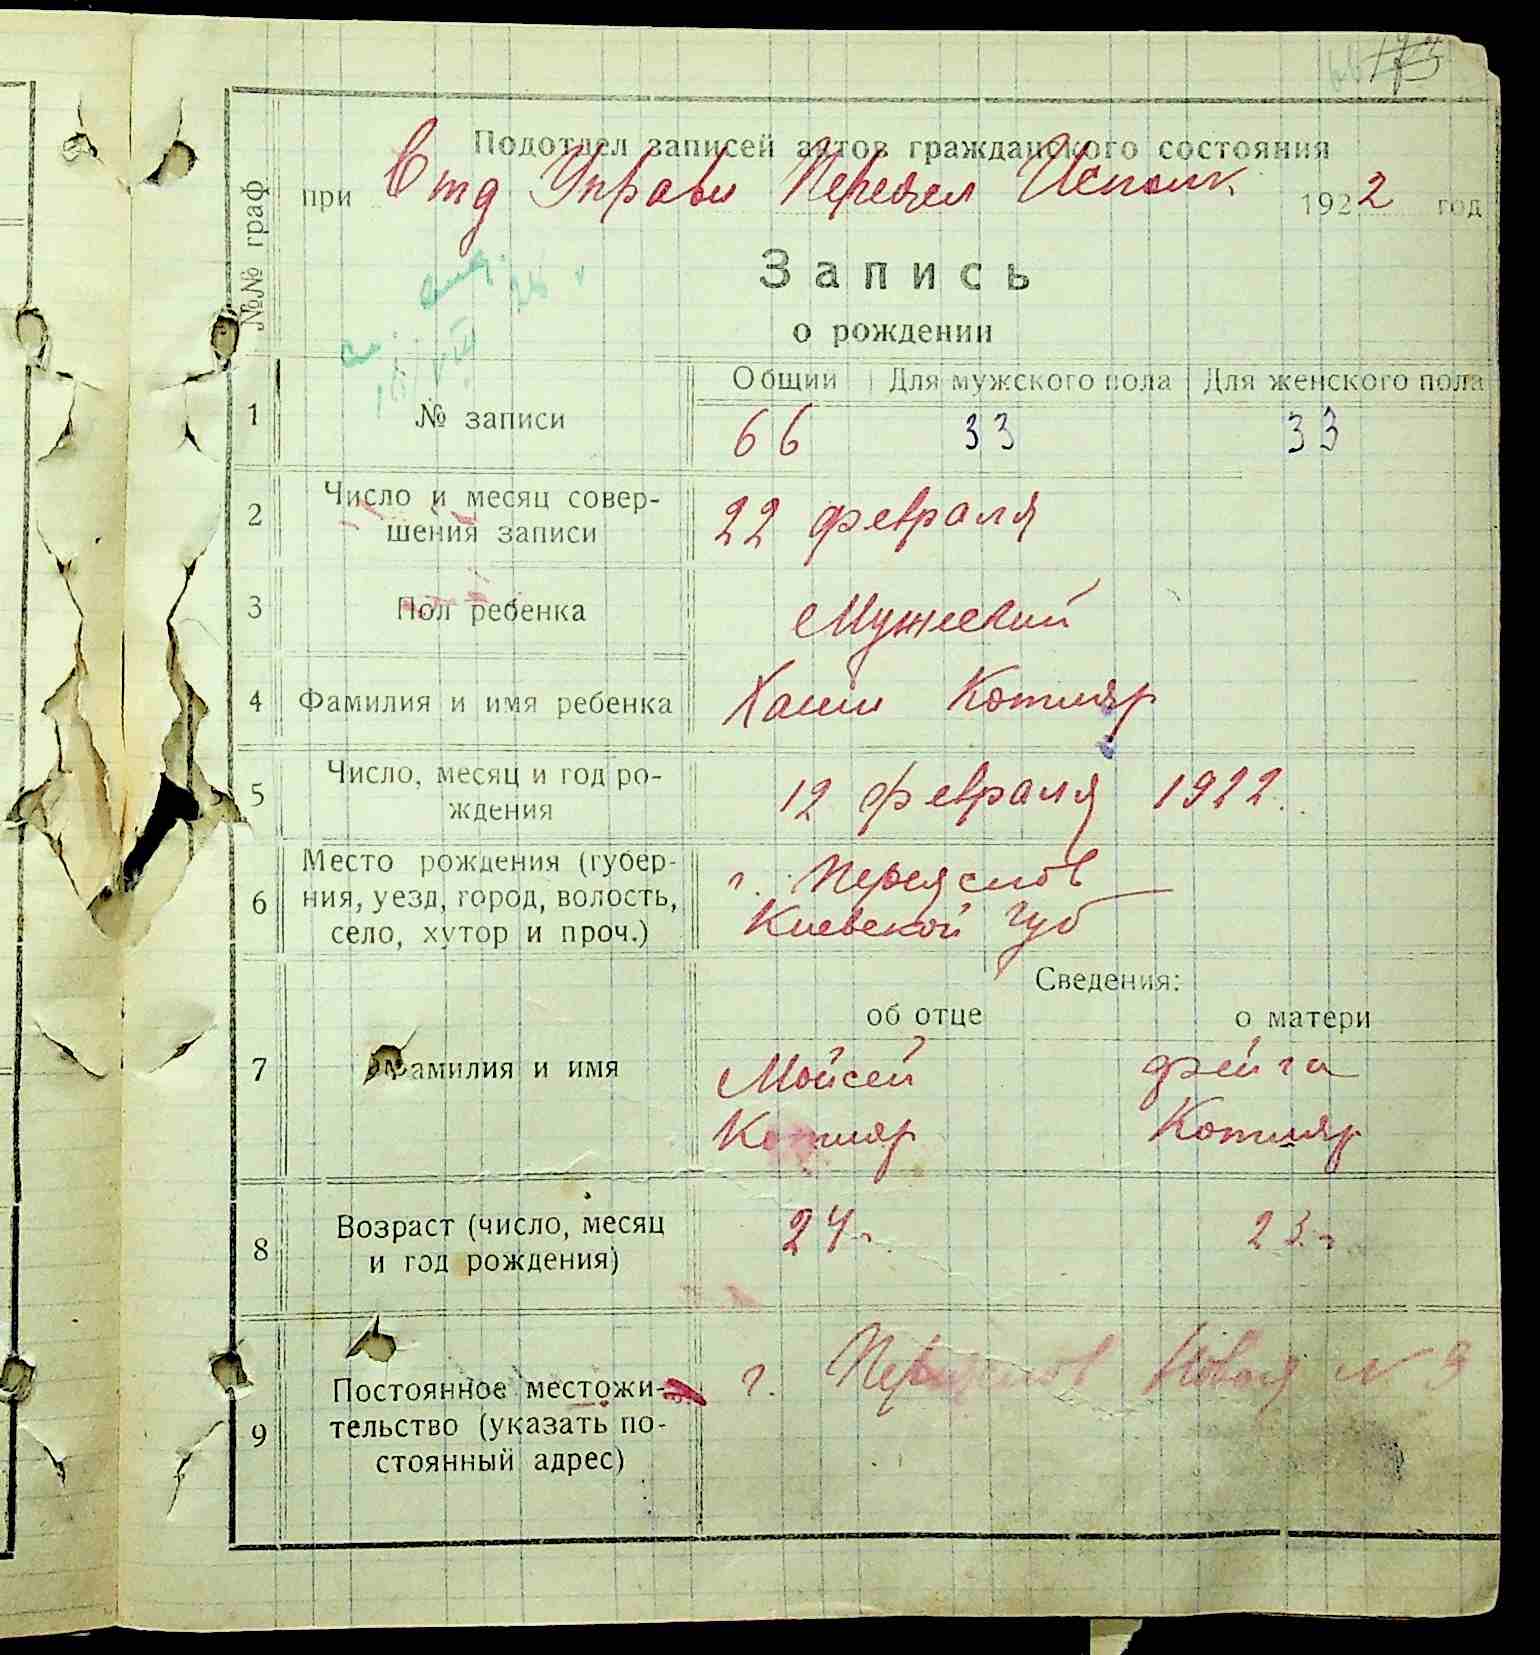 Подотдел записей актов гражданского состояния
при Отд Управл Переясл Исполк 1922 год
№№ граф
Запись
о рождении
Общий Для мужского пола Для женского пола
1 № записи 66 33 33
2 Число и месяц совер-
шения записи 22 февраля
3 Пол ребенка Мужеский
4 Фамилия и имя ребенка Хаим Котляр
5 Число, месяц и год ро-
ждения 12 февраля 1922
6 Место рождения (губер-
ния, уезд, город, волость,
село, хутор и проч.)
г. Переяслов
Киевской Губ
Сведения:
об отце о матери
7 Фамилия и имя
Мойсей Фейга
Котляр Котляр
8 Возраст (число, месяц
и год рождения) 24 г. 23 г.
9 Постоянное местожи-
тельство (указать по-
стоянный адрес)
г. Переяслов Новая N 9